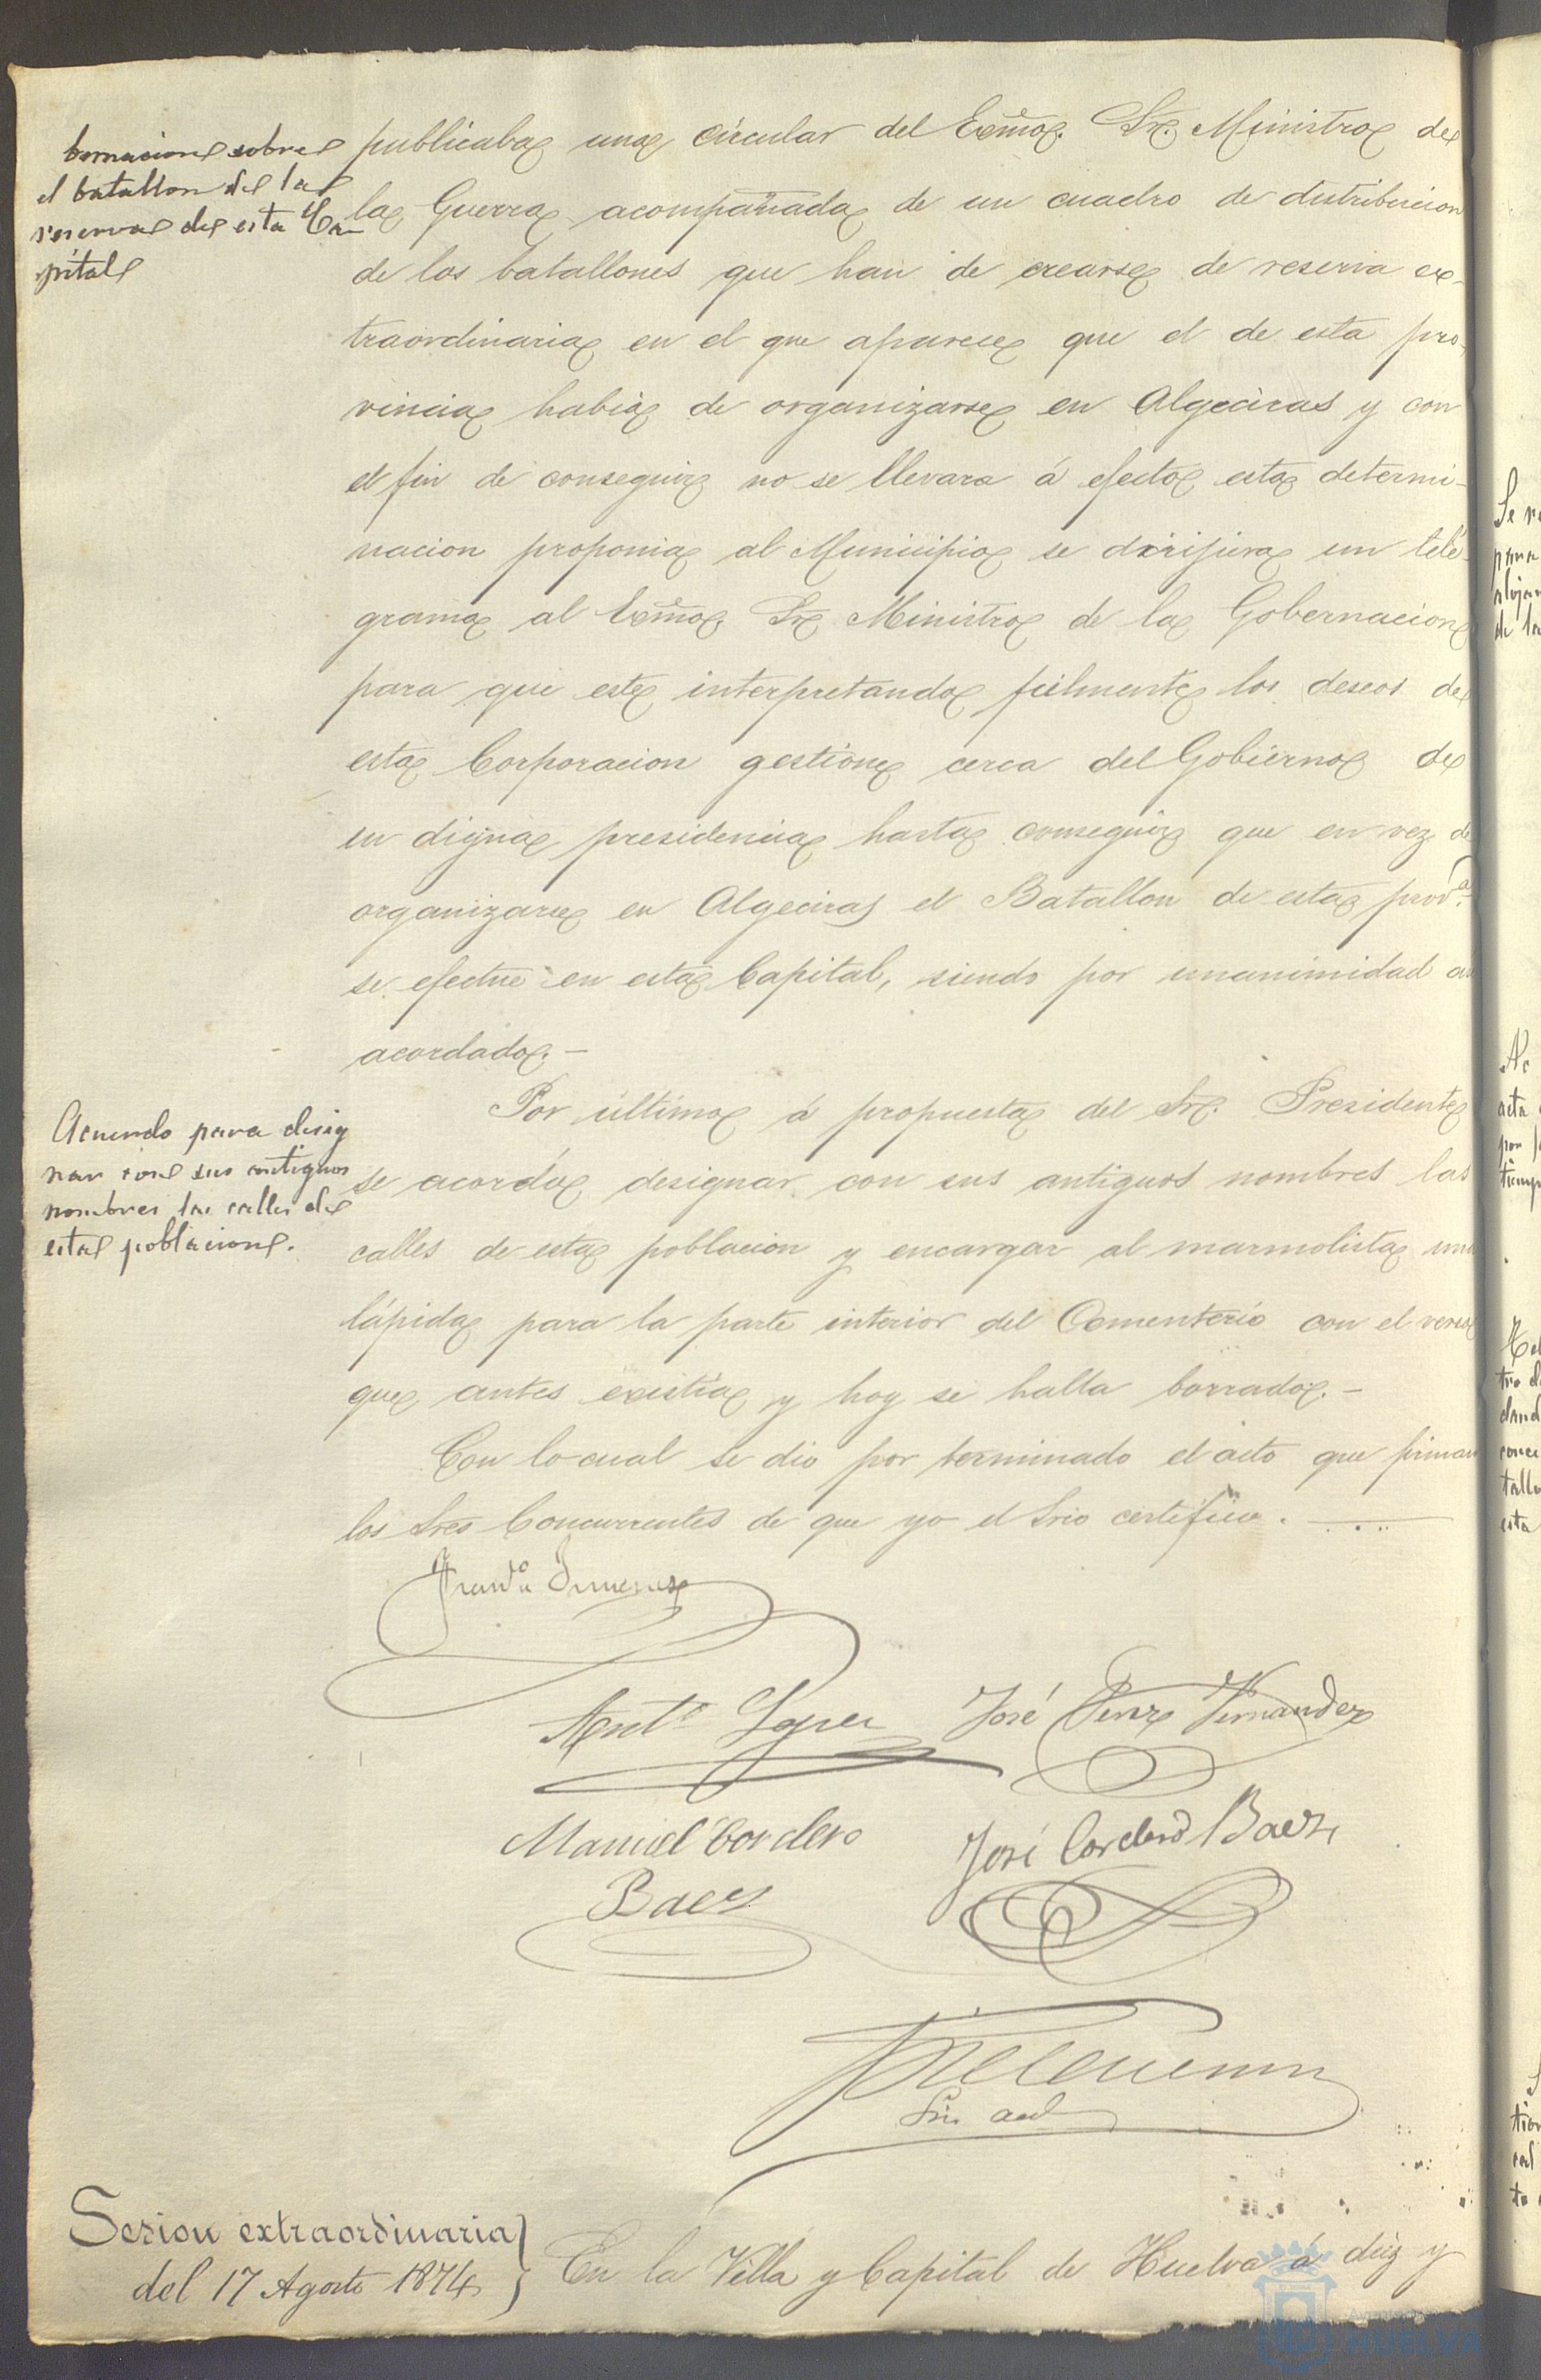 bernacion sobre
el batallon de la
reserva de esta Ca-
pital
publicaba una circular del Exmo. Sr. Ministro de
la Guerra acompañada de un cuadro de distribucion
de los batallones que han de crearse de reserva ex-
traordinaria en el que aparece que el de esta pro-
vincia habia de organizarse en Algeciras y con
el fin de conseguir no se llevara á efecto esta determi-
nacion proponia al Municipio se dirijiera un telé-
grama al Exmo. Sr. Ministro de la Gobernacion
para que este interpretando fielmente los deseos de
esta Corporacion gestione cerca del Gobierno de
su digna presidencia hasta conseguir que en vez de
organizarse en Algeciras el Batallon de esta prova.
se efectue en esta Capital, siendo por unanimidad asi
acordado.-
Acuerdo para desig
nar con sus antiguos
nombres las calles de
esta poblacion.
Por último á propuesta del Sr. Presidente
se acordó designar con sus antiguos nombres las
calles de esta poblacion y encargar al marmolista una
lápida para la parte interior del Cementerio con el verso
que antes existia y hoy se halla borrado.-
Con lo cual se dio por terminado el acto que firman
los Sres Concurrentes de que yo el Srio certifico.
Franco Jimenez
Anto Lopez
José Perez Fernandez
Manuel Cordero
Baez
José Cordero Baez
Srio acd
Sesion extraordinaria
del 17 Agosto 1874
En la Villa y Capital de Huelva á diez y
HUELVA